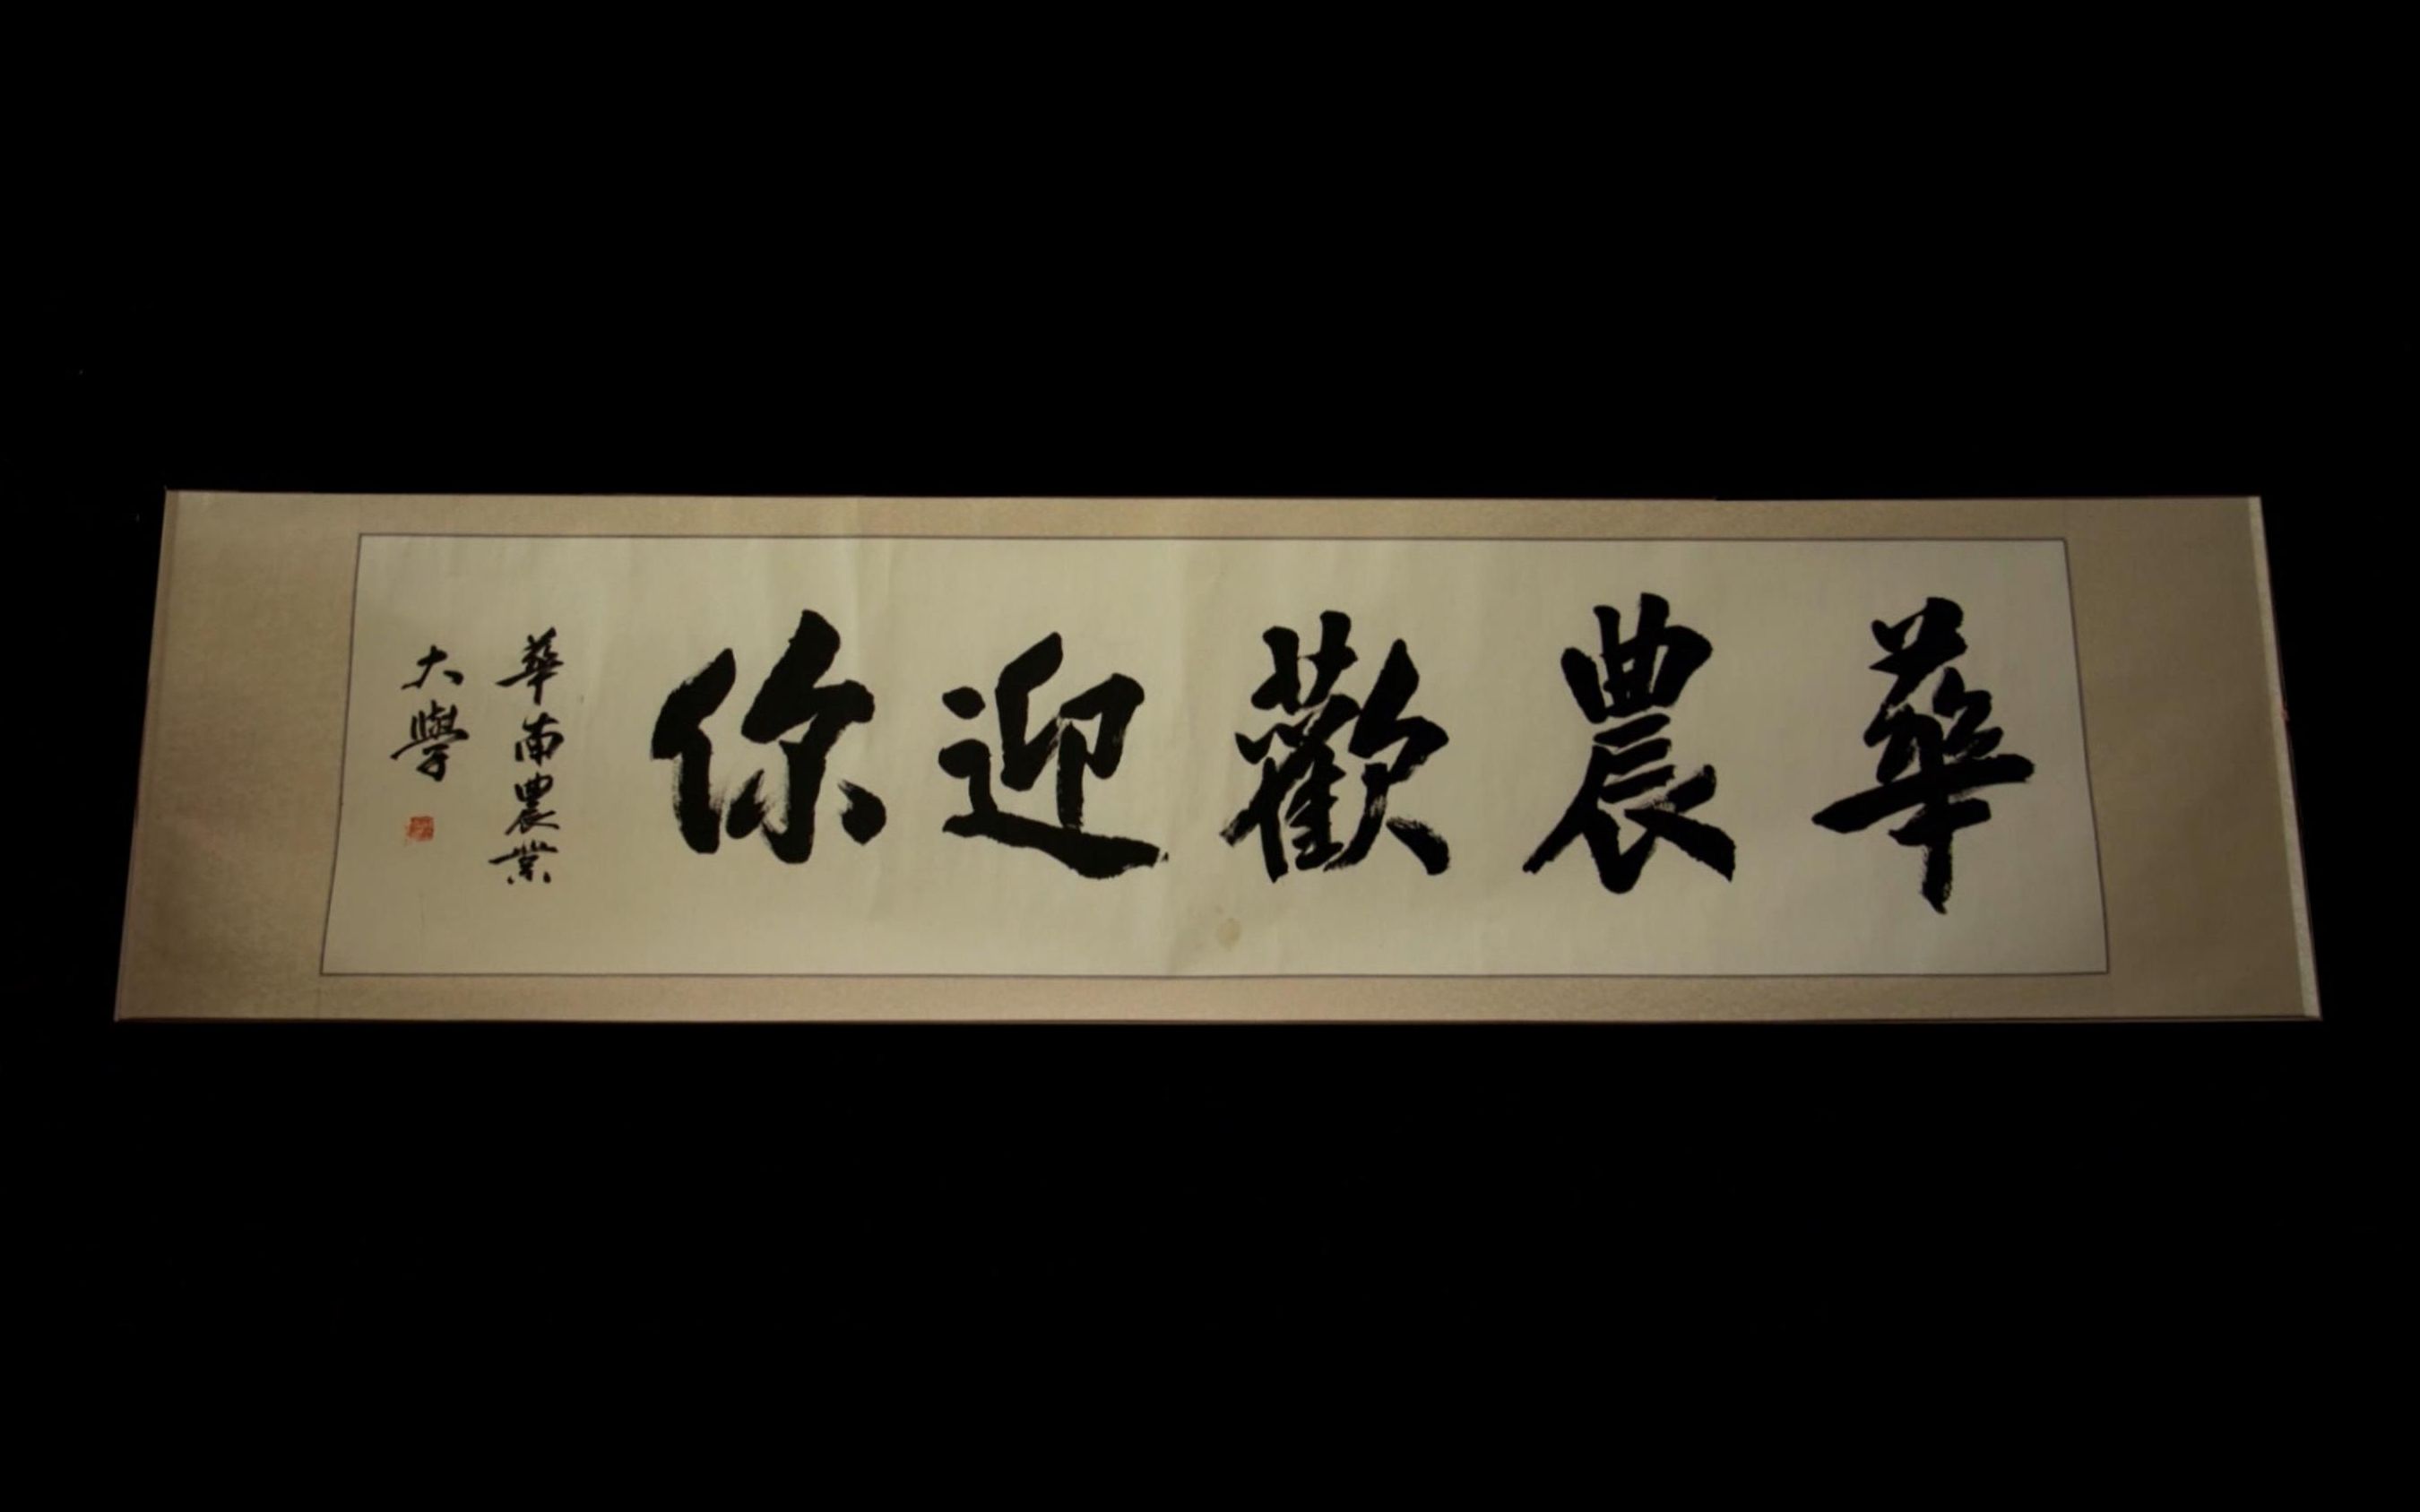 華農歡迎你
華南農業
大學